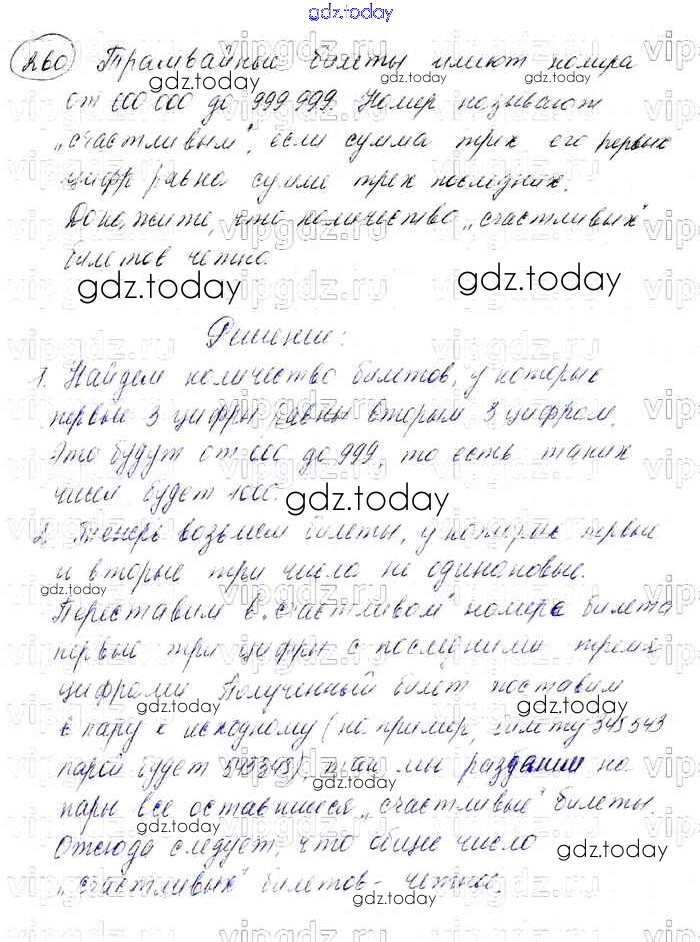 gdz.today
260 Трамвайные билеты имеют номера
от 000 000 до 999 999. Номер называют
„счастливым", если сумма трех его первых
цифр равна сумме трех последних.
Докажите, что количество „счастливых"
билетов четно.
gdz.today gdz.today
Решение:
1. Найдем количество билетов, у которых
первые 3 цифры равны вторым 3 цифрам.
Это будут от 000 до 999, то есть таких
чисел будет 1000.
gdz.today
2. Теперь возьмем билеты, у которых первые
и вторые три числа не одинаковые.
Переставим в „счастливом" номере билета
первые три цифры с последними тремя
цифрами. Полученный билет поставим
в пару к исходному (например, билету
парой будет), так мы разбили на
пары все оставшиеся „счастливые" билеты.
Отсюда следует, что общее число
„счастливых" билетов - четное.
gdz.today